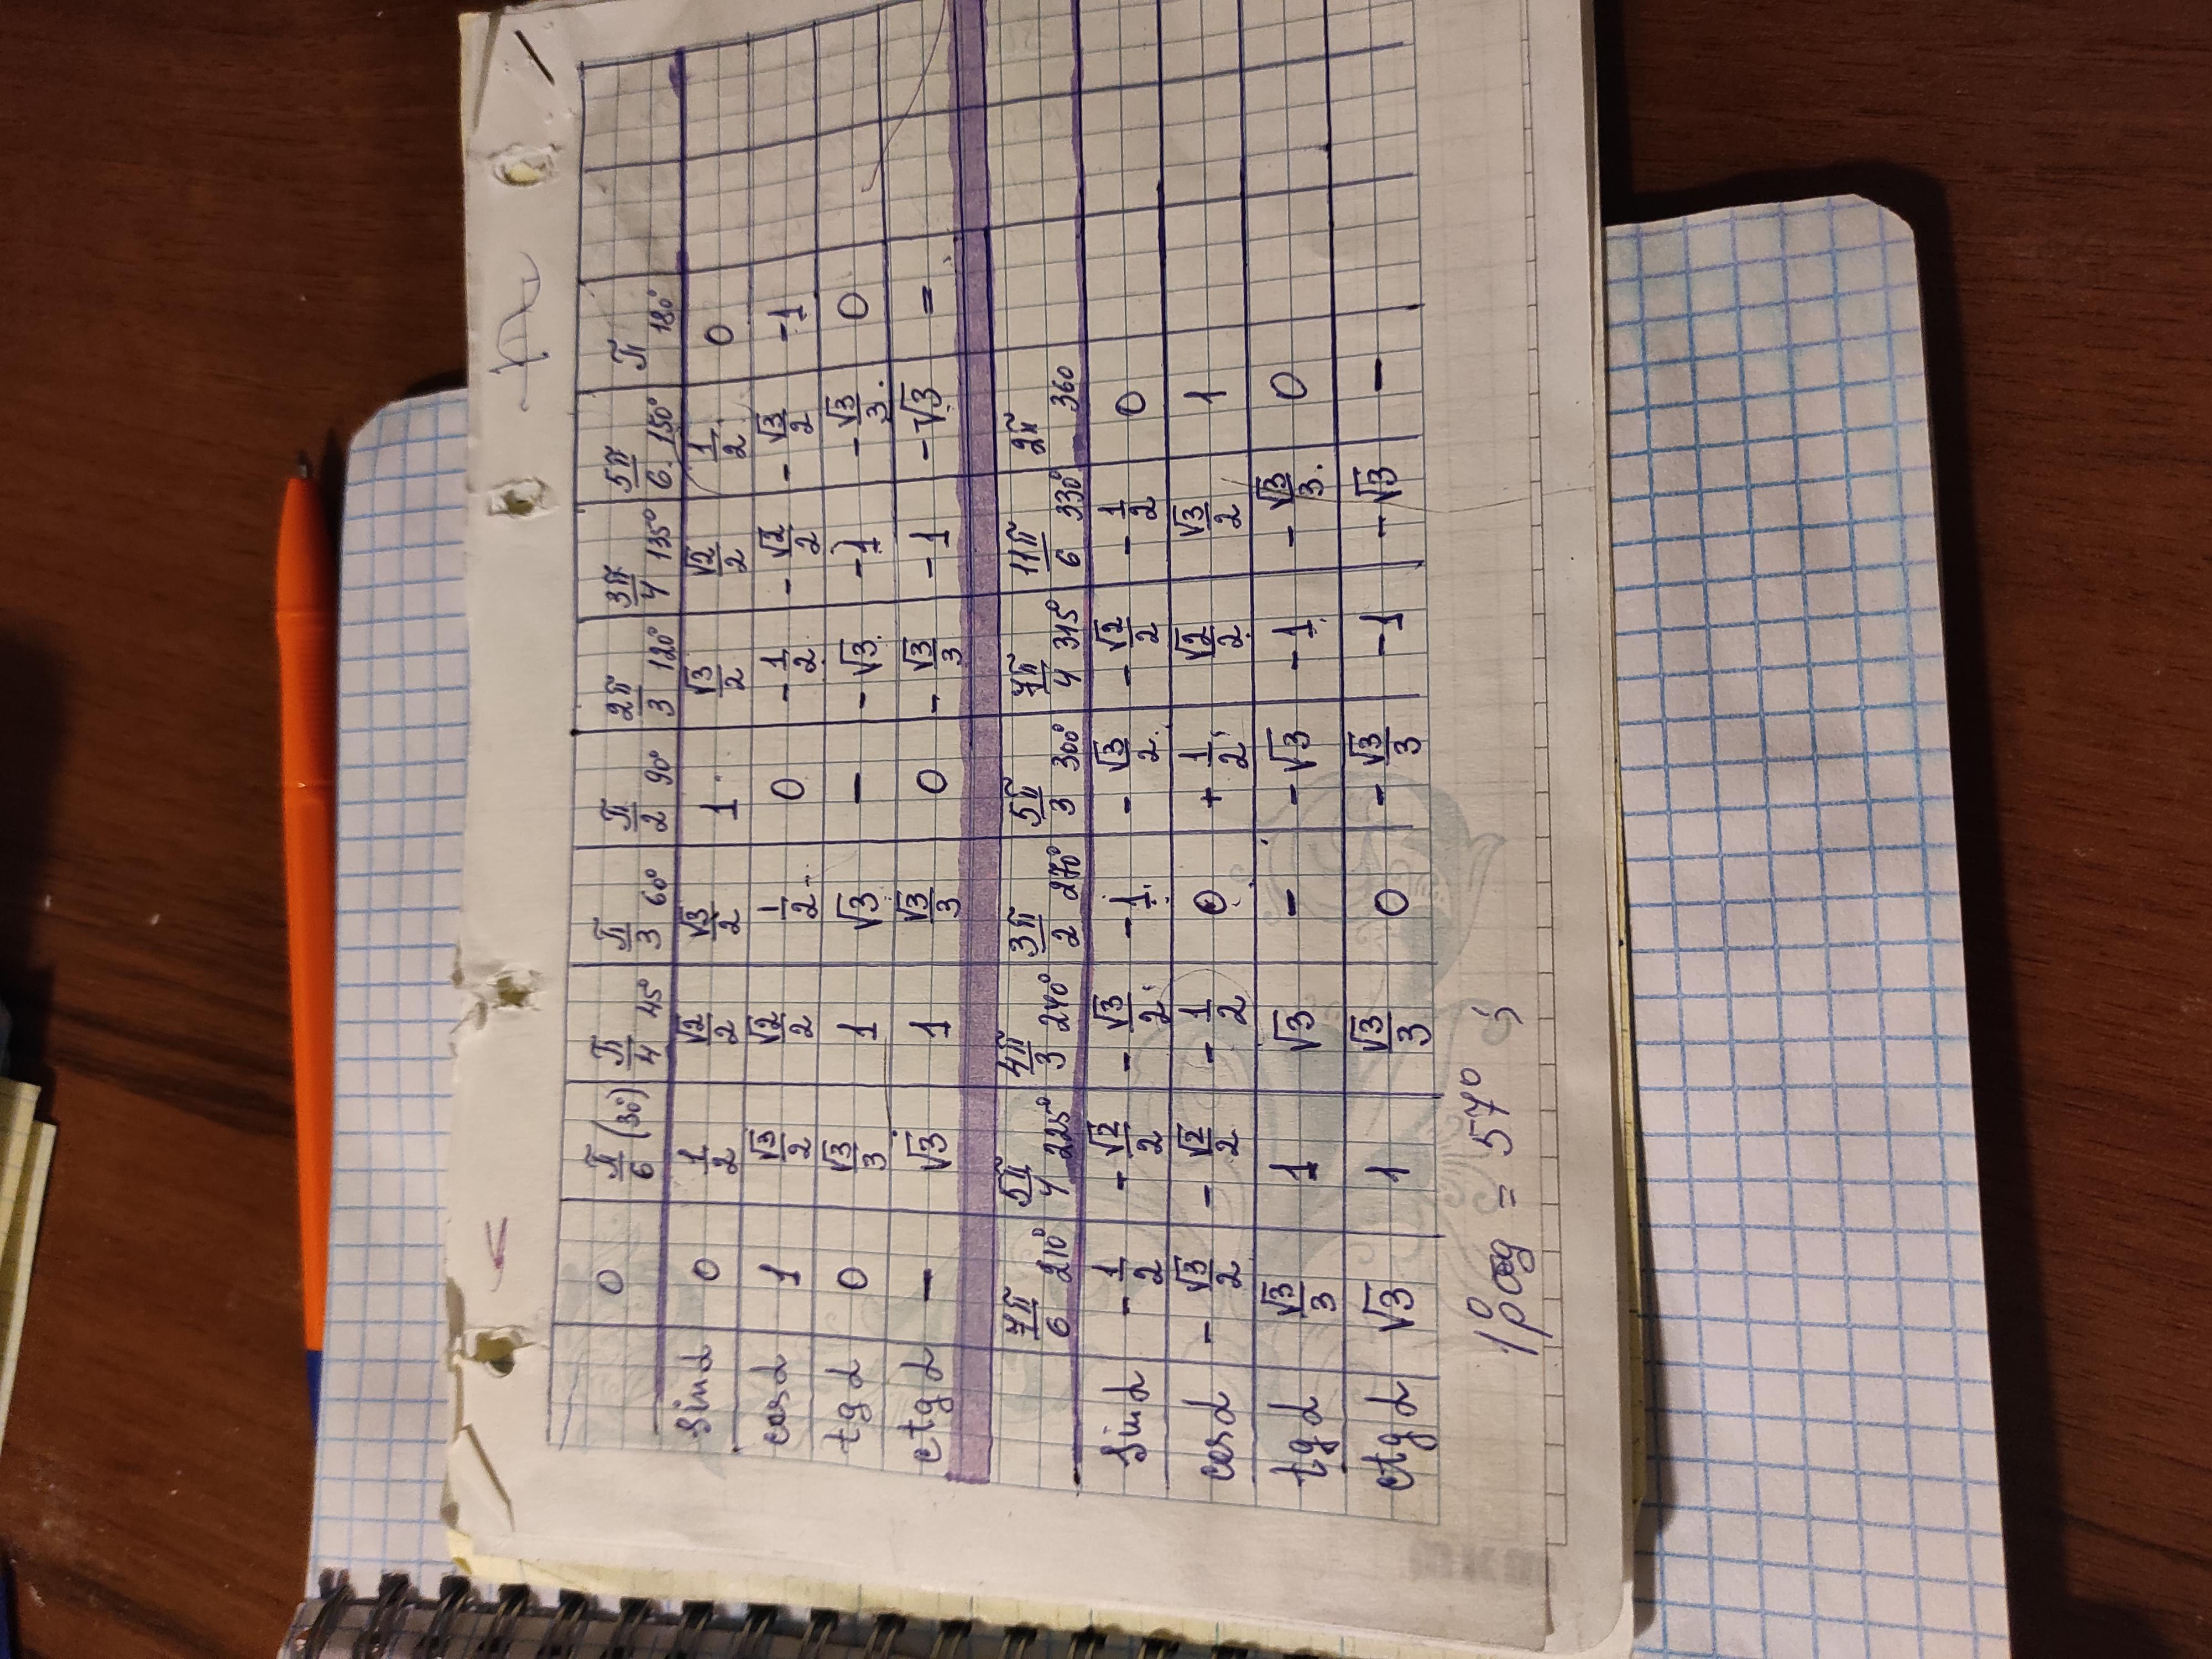 0 π/6 (30°) π/4 45° π/3 60° π/2 90° 2π/3 120° 3π/4 135° 5π/6 150° π 180°
sin α 0 1/2 √2/2 √3/2 1 √3/2 √2/2 1/2 0
cos α 1 √3/2 √2/2 1/2 0 -1/2 -√2/2 -√3/2 -1
tg α 0 √3/3 1 √3 - -√3 -1 -√3/3 0
ctg α - √3 1 √3/3 0 -√3/3 -1 -√3 =
7π/6 210° 5π/4 225° 4π/3 240° 3π/2 270° 5π/3 300° 7π/4 315° 11π/6 330° 2π 360
sin α -1/2 -√2/2 -√3/2 -1 -√3/2 -√2/2 -1/2 0
cos α -√3/2 -√2/2 -1/2 0 +1/2 √2/2 √3/2 1
tg α √3/3 1 √3 - -√3 -1 -√3/3 0
ctg α √3 1 √3/3 0 -√3/3 -1 -√3 -
1 рад = 57° ;